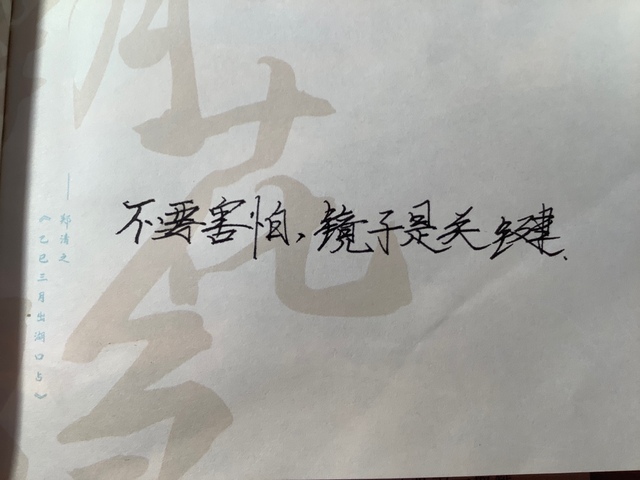 不要害怕、镜子是关键、
——郑清之
《乙巳三月出湖口占》
花